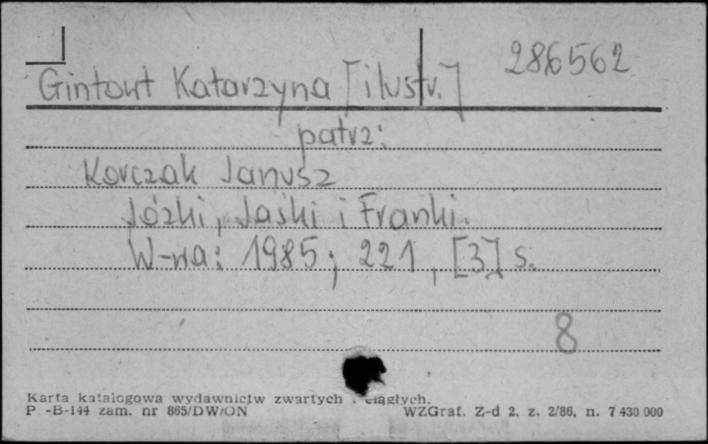 286562
Gintowt Katarzyna [ilustr.]
patrz:
Korczak Janusz
Józki, Jaśki i Franki.
W-wa: 1985; 221, [3] s.
8
Karta katalogowa wydawnictw zwartych i ciągłych.
P -B-144 zam. nr 865/DW/ON
WZGraf. Z-d 2, z. 2/86, n. 7 430 000